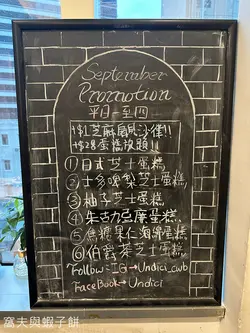 September
Promotion
平日一至四
+$1芝麻扇貝沙律!!
+$28蛋糕放題!!
①日式芝士蛋糕
②士多啤梨芝士蛋糕
③柚子芝士蛋糕
④朱古力豆腐蛋糕
⑤焦糖果仁海綿蛋糕
⑥伯爵茶芝士蛋糕
Follow: IG→Undici_cwb
FaceBook→Undici
窩夫與蝦子餅